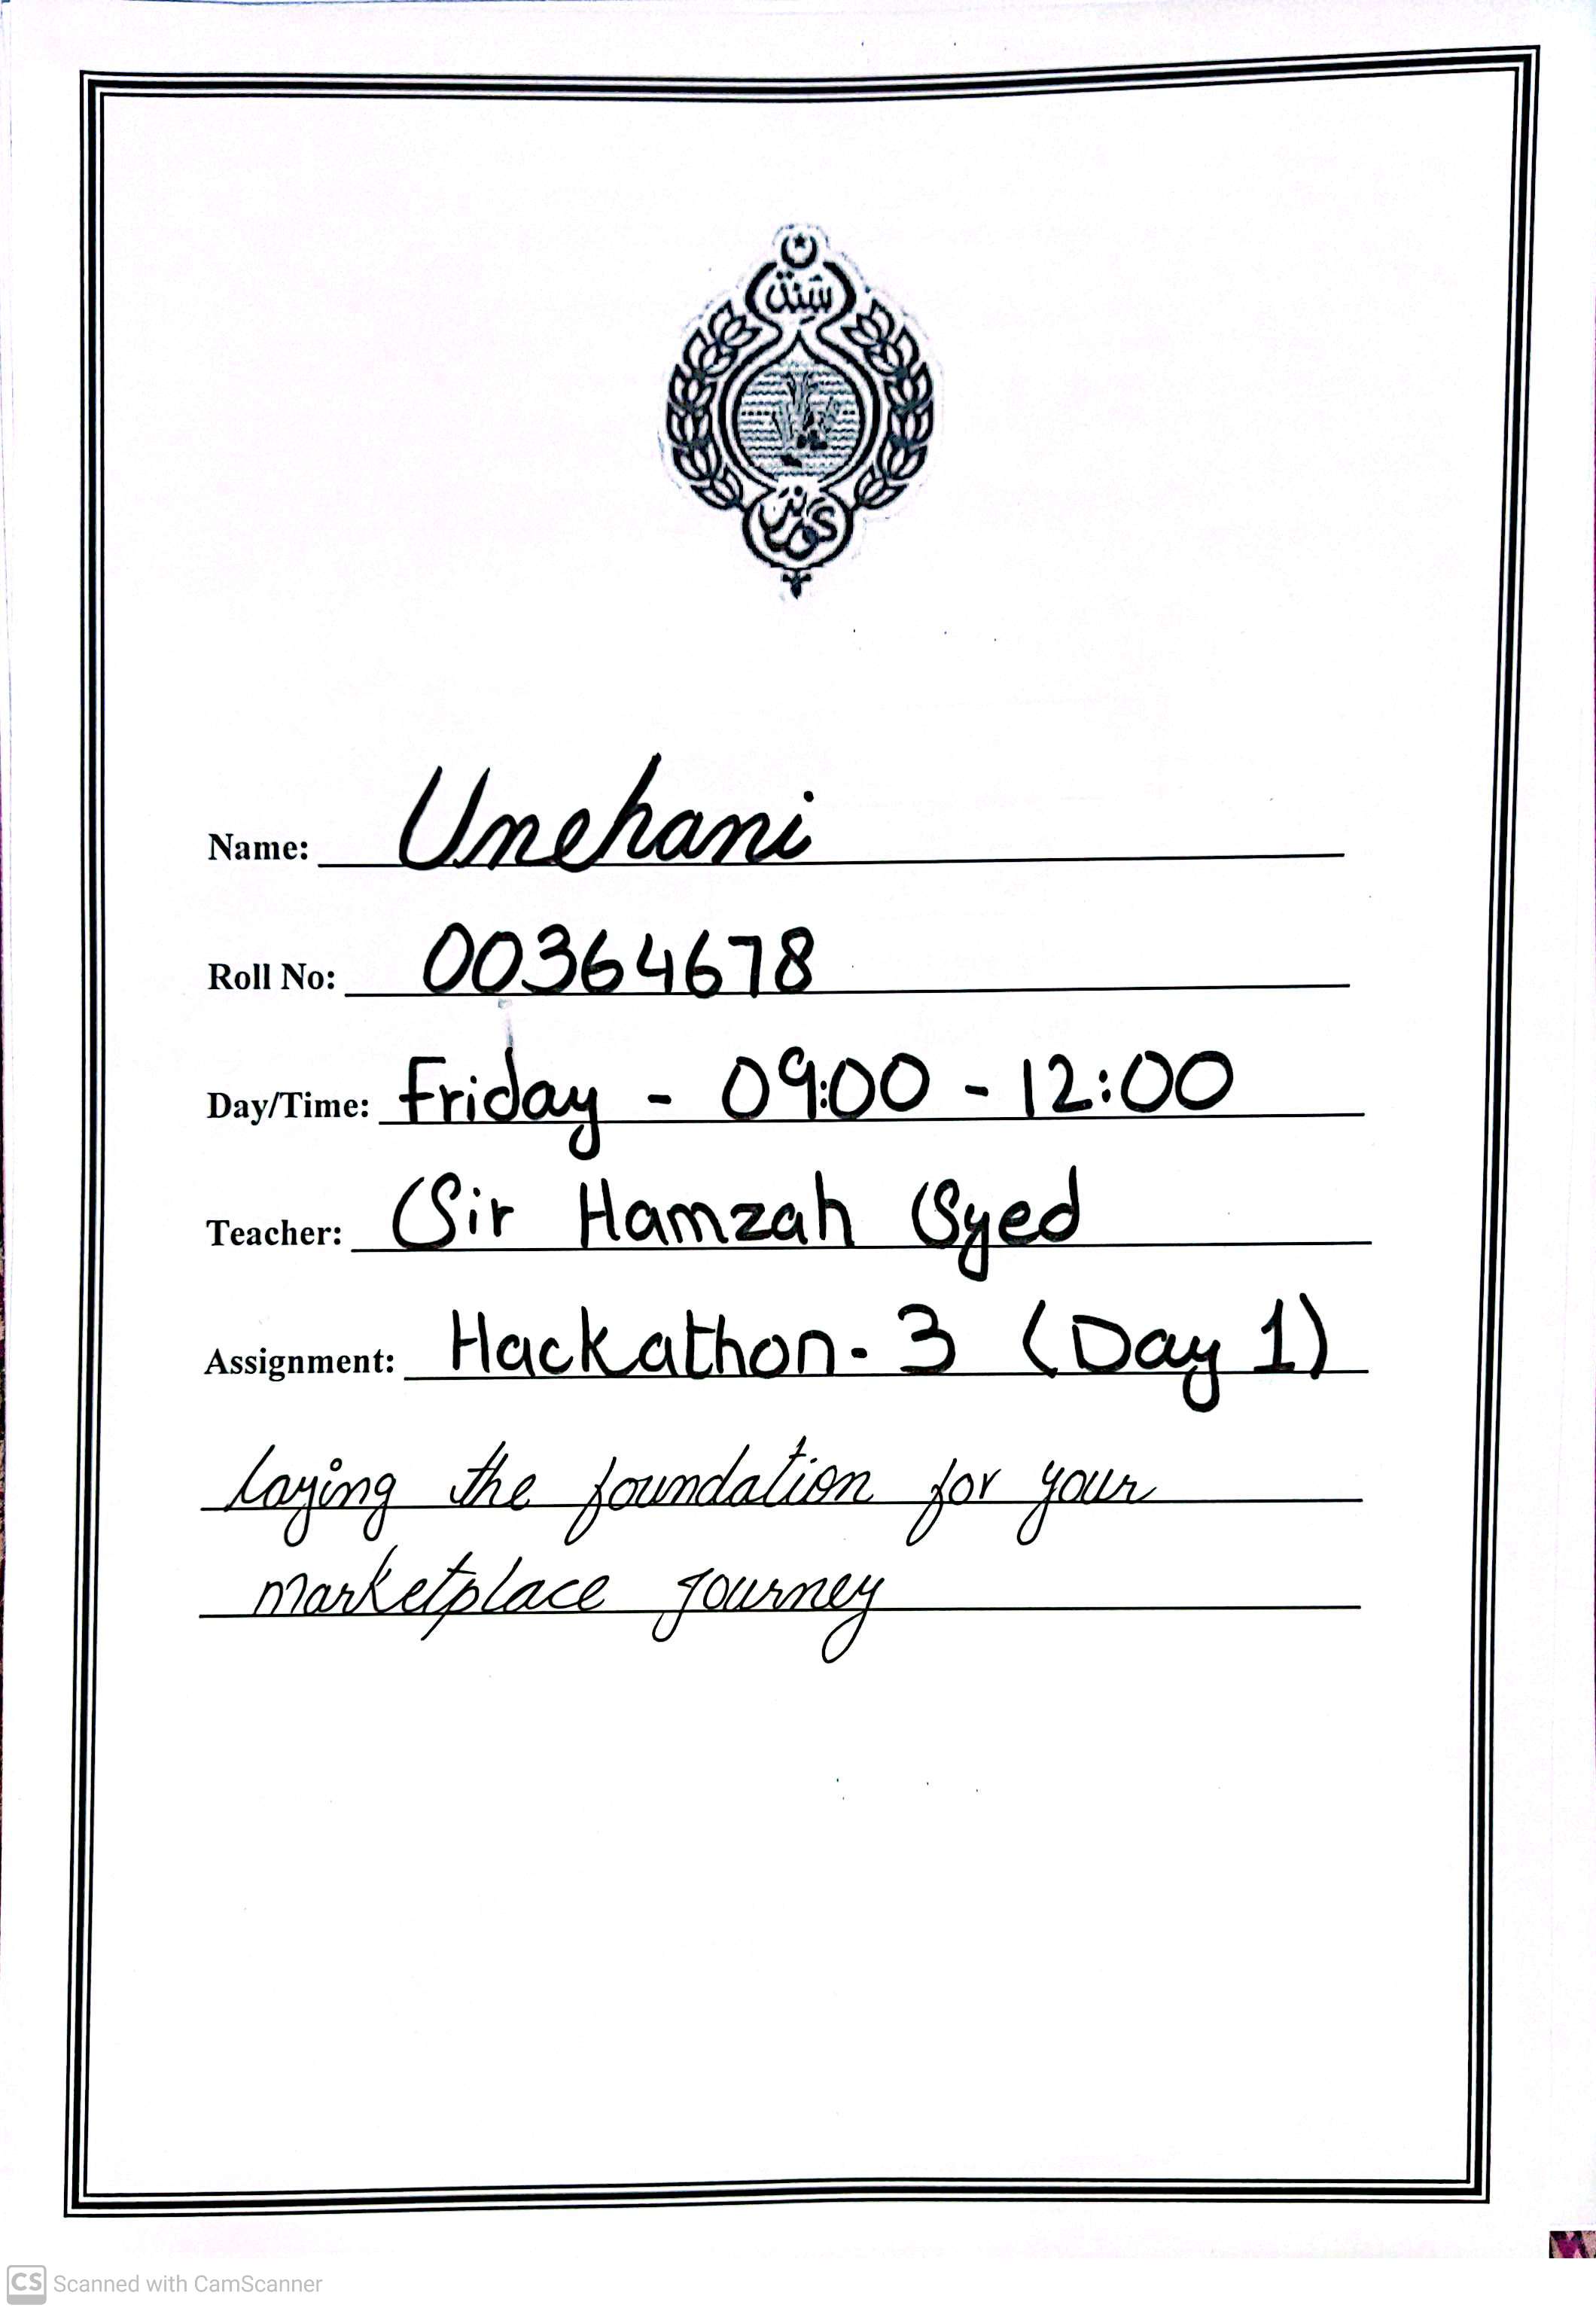 سنڌ
Name: Umehani
Roll No: 00364678
Day/Time: Friday - 09:00 - 12:00
Teacher: Sir Hamzah Syed
Assignment: Hackathon - 3 (Day 1)
Laying the foundation for your
marketplace journey
CS Scanned with CamScanner